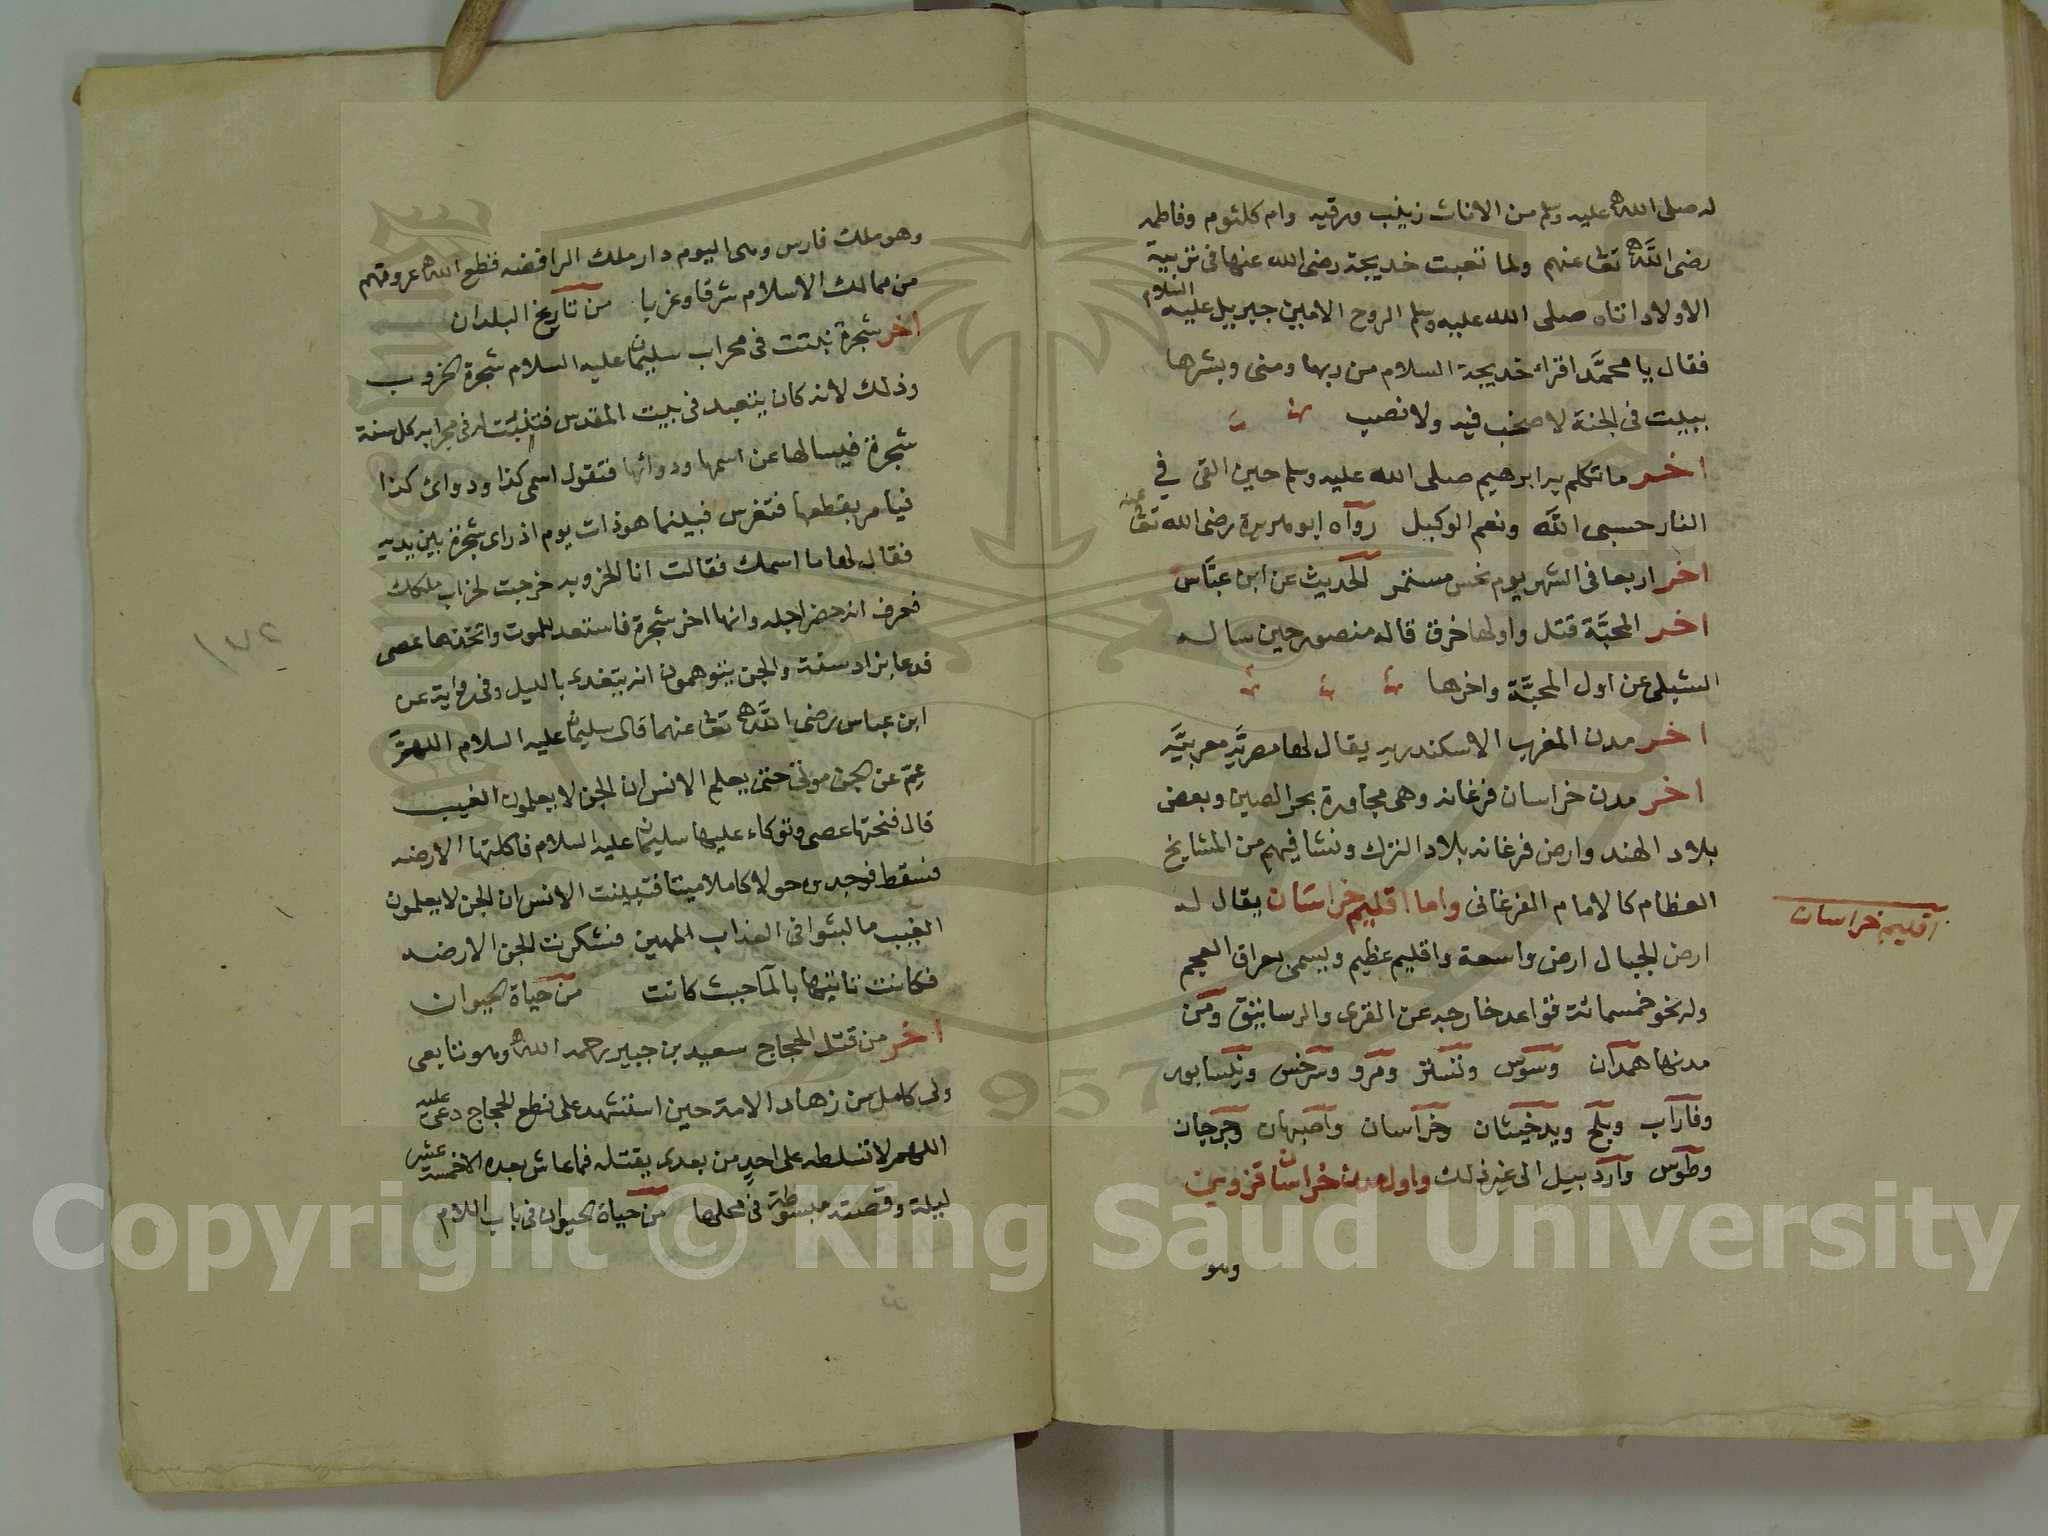 له صلى الله عليه وسلم من الاناث زينب ورقيه وام كلثوم وفاطمه
رضى الله تعا عنهم ولما تعبت خديجة رضى الله عنها فى تربية
الاولاد اتاه صلى الله عليه وسلم الروح الامين جبريل عليه السلام
فقال يا محمد اقراء خديجة السلام من ربها ومنى وبشرها
ببيت فى الجنة لا صخب فيه ولا نصب
اخر ما تكلم به ابرهيم صلى الله عليه وسلم حين القى في
النار حسبى الله ونعم الوكيل رواه ابو هريرة رضى الله تعا عنه
اخر اربعا فى الشهر يوم نحس مستمر الحديث عن ابن عباس
اخر المحبة قتل واولها حرق قاله منصور حين ساله
الشبلى عن اول المحبة واخرها
اخر مدن المغرب الاسكندريه يقال لها مصريه مغربيه
اخر مدن خراسان فرغانه وهى مجاورة بحر الصين وبعض
بلاد الهند وارض فرغانه بلاد الترك ونشا فيهم من المشايخ
العظام كالامام الفرغانى واما اقليم خراسان يقال له
اقليم خراسان
ارض الجبال ارض واسعة واقليم عظيم ويسمى بعراق العجم
وله نحو خمسمائة قواعد خارجه عن القرى والرساتيق ومن
مدنها همدان وسوس وتستر ومرو وسرخس ونيسابور
وفاراب وبلخ وبدخشان وخراسان واصبهان وجرجان
وطوس واردبيل الى غير ذلك واول مدن خراسان قزوين
وهو
وهو ملك فارس وهى اليوم دار ملك الرافضه قطع الله عروقهم
من ممالك الاسلام شرقا وغربا من تاريخ البلدان
اخر شجرة نبتت فى محراب سليمان عليه السلام شجرة الخروب
وذلك لانه كان يتعبد فى بيت المقدس فتنبت له فى محرابه كل سنة
شجرة فيسالها عن اسمها ودوائها فتقول اسمى كذا ودوائ كذا
فيامر بقطعها فتغرس فبينما هو ذات يوم اذ راى شجرة بين يديه
فقال لها ما اسمك فقالت انا الخروبه خرجت لخراب ملكك
فعرف انه حضر اجله وانها اخر شجرة فاستعد للموت واتخذها عصى
فدعا بزاد سنة والجن يتوهمون انه يتغدى بالليل وفى رواية عن
ابن عباس رضى الله تعا عنهما قال سليمان عليه السلام اللهم
غم عن الجن موتى حتى يعلم الانس ان الجن لا يعلمون الغيب
قال فنحتها عصى وتوكاء عليها سليمان عليه السلام فاكلتها الارضه
فسقط فوجدوه حولا كاملا ميتا فتبينت الانس ان الجن لا يعلمون
الغيب ما لبثوا فى العذاب المهين فشكرت الجن الارضه
فكانت تاتيها بالماء حيث كانت من حياة الحيوان
اخر من قتل الحجاج سعيد بن جبير رحمه الله وهو تابعى
ولى كامل من زهاد الامة حين استشهد على نطع الحجاج دعى عليه
اللهم لا تسلطه على احد من بعدى يقتله فما عاش بعده الا خمسة عشر
ليلة وقصته مبسوطة فى محلها من حياة الحيوان فى باب اللام
Copyright © King Saud University
1957